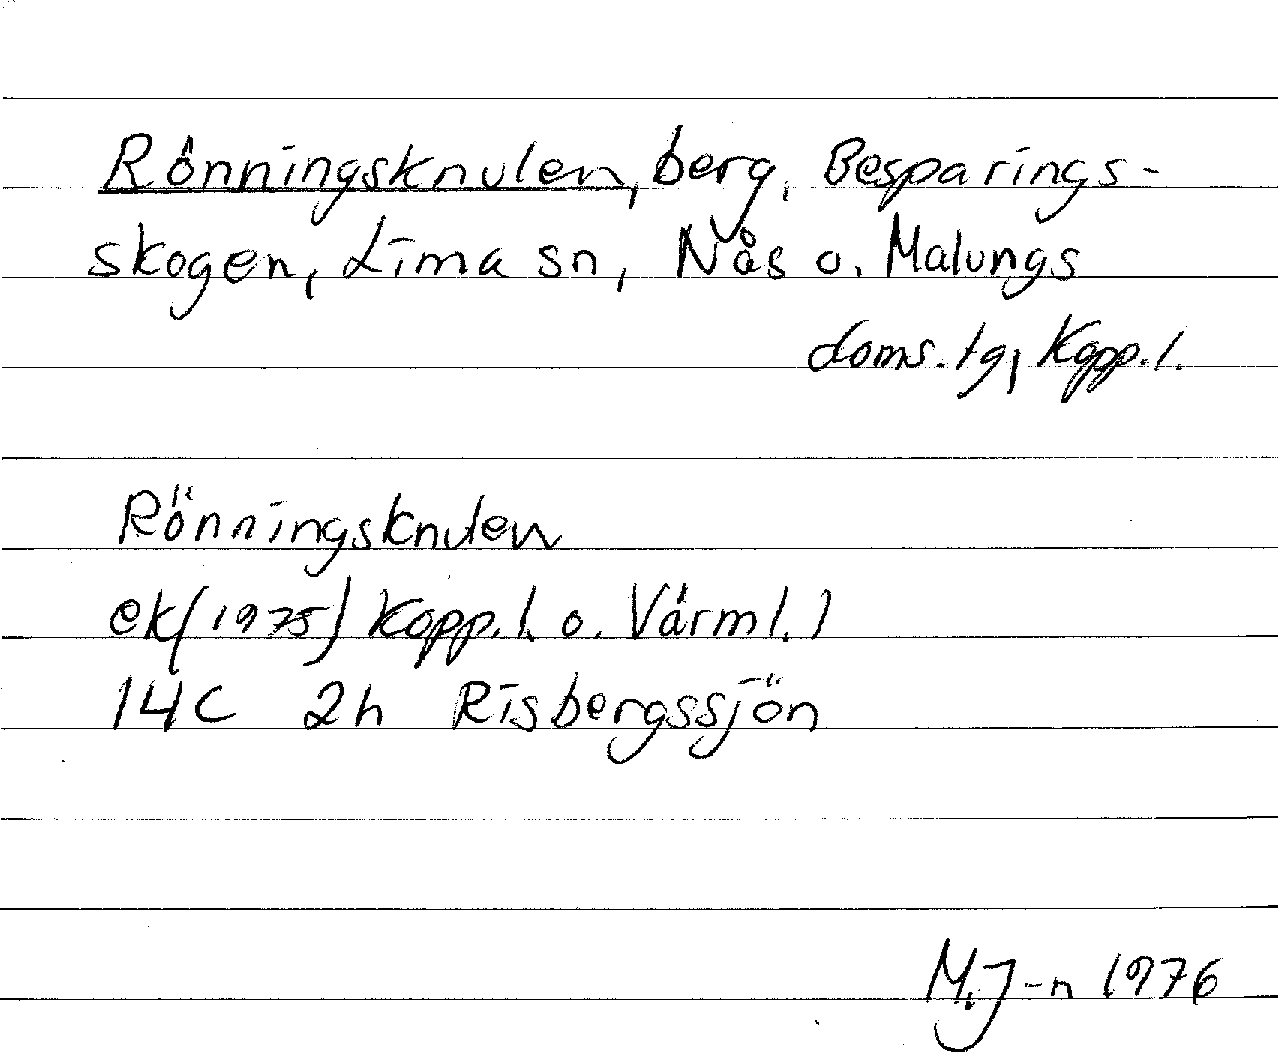 Rönningsknulen, berg, Besparings-
skogen, Lima sn, Nås o. Malungs
doms. tg, Kopp. l.
Rönningsknulen
ek (1975) Kopp. l. o. Värml. l
14C 2h Risbergssjön
M. J-n 1976